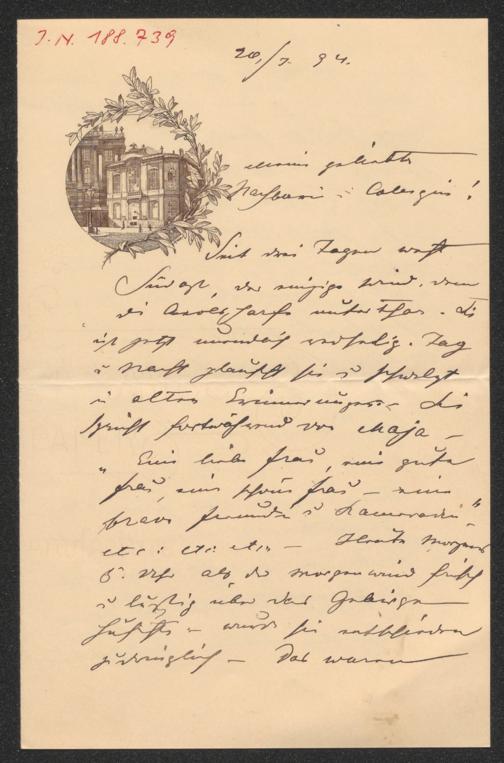 J. N. 188.739
20./7. 94.
Meine geliebte
Nachbarin u. Collegin!
Seit drei Tagen weht
Südost, der einzige Wind, dem
die Aeolsharfe unterthan. Sie
ist jetzt unendlich redselig. Tag
u Nacht plauscht sie u schwelgt
in alten Erinnerungen – Sie
spricht fortwährend von Maja –
„Eine liebe Frau, eine gute
Frau, eine schöne Frau – eine
brave Freundin u Kameradin"
etc: etc: etc: – Heute Morgens
5. Uhr als der Morgenwind frisch
u lustig über das Gebirge
huschte – wurde sie entschieden
zudringlich – Das waren